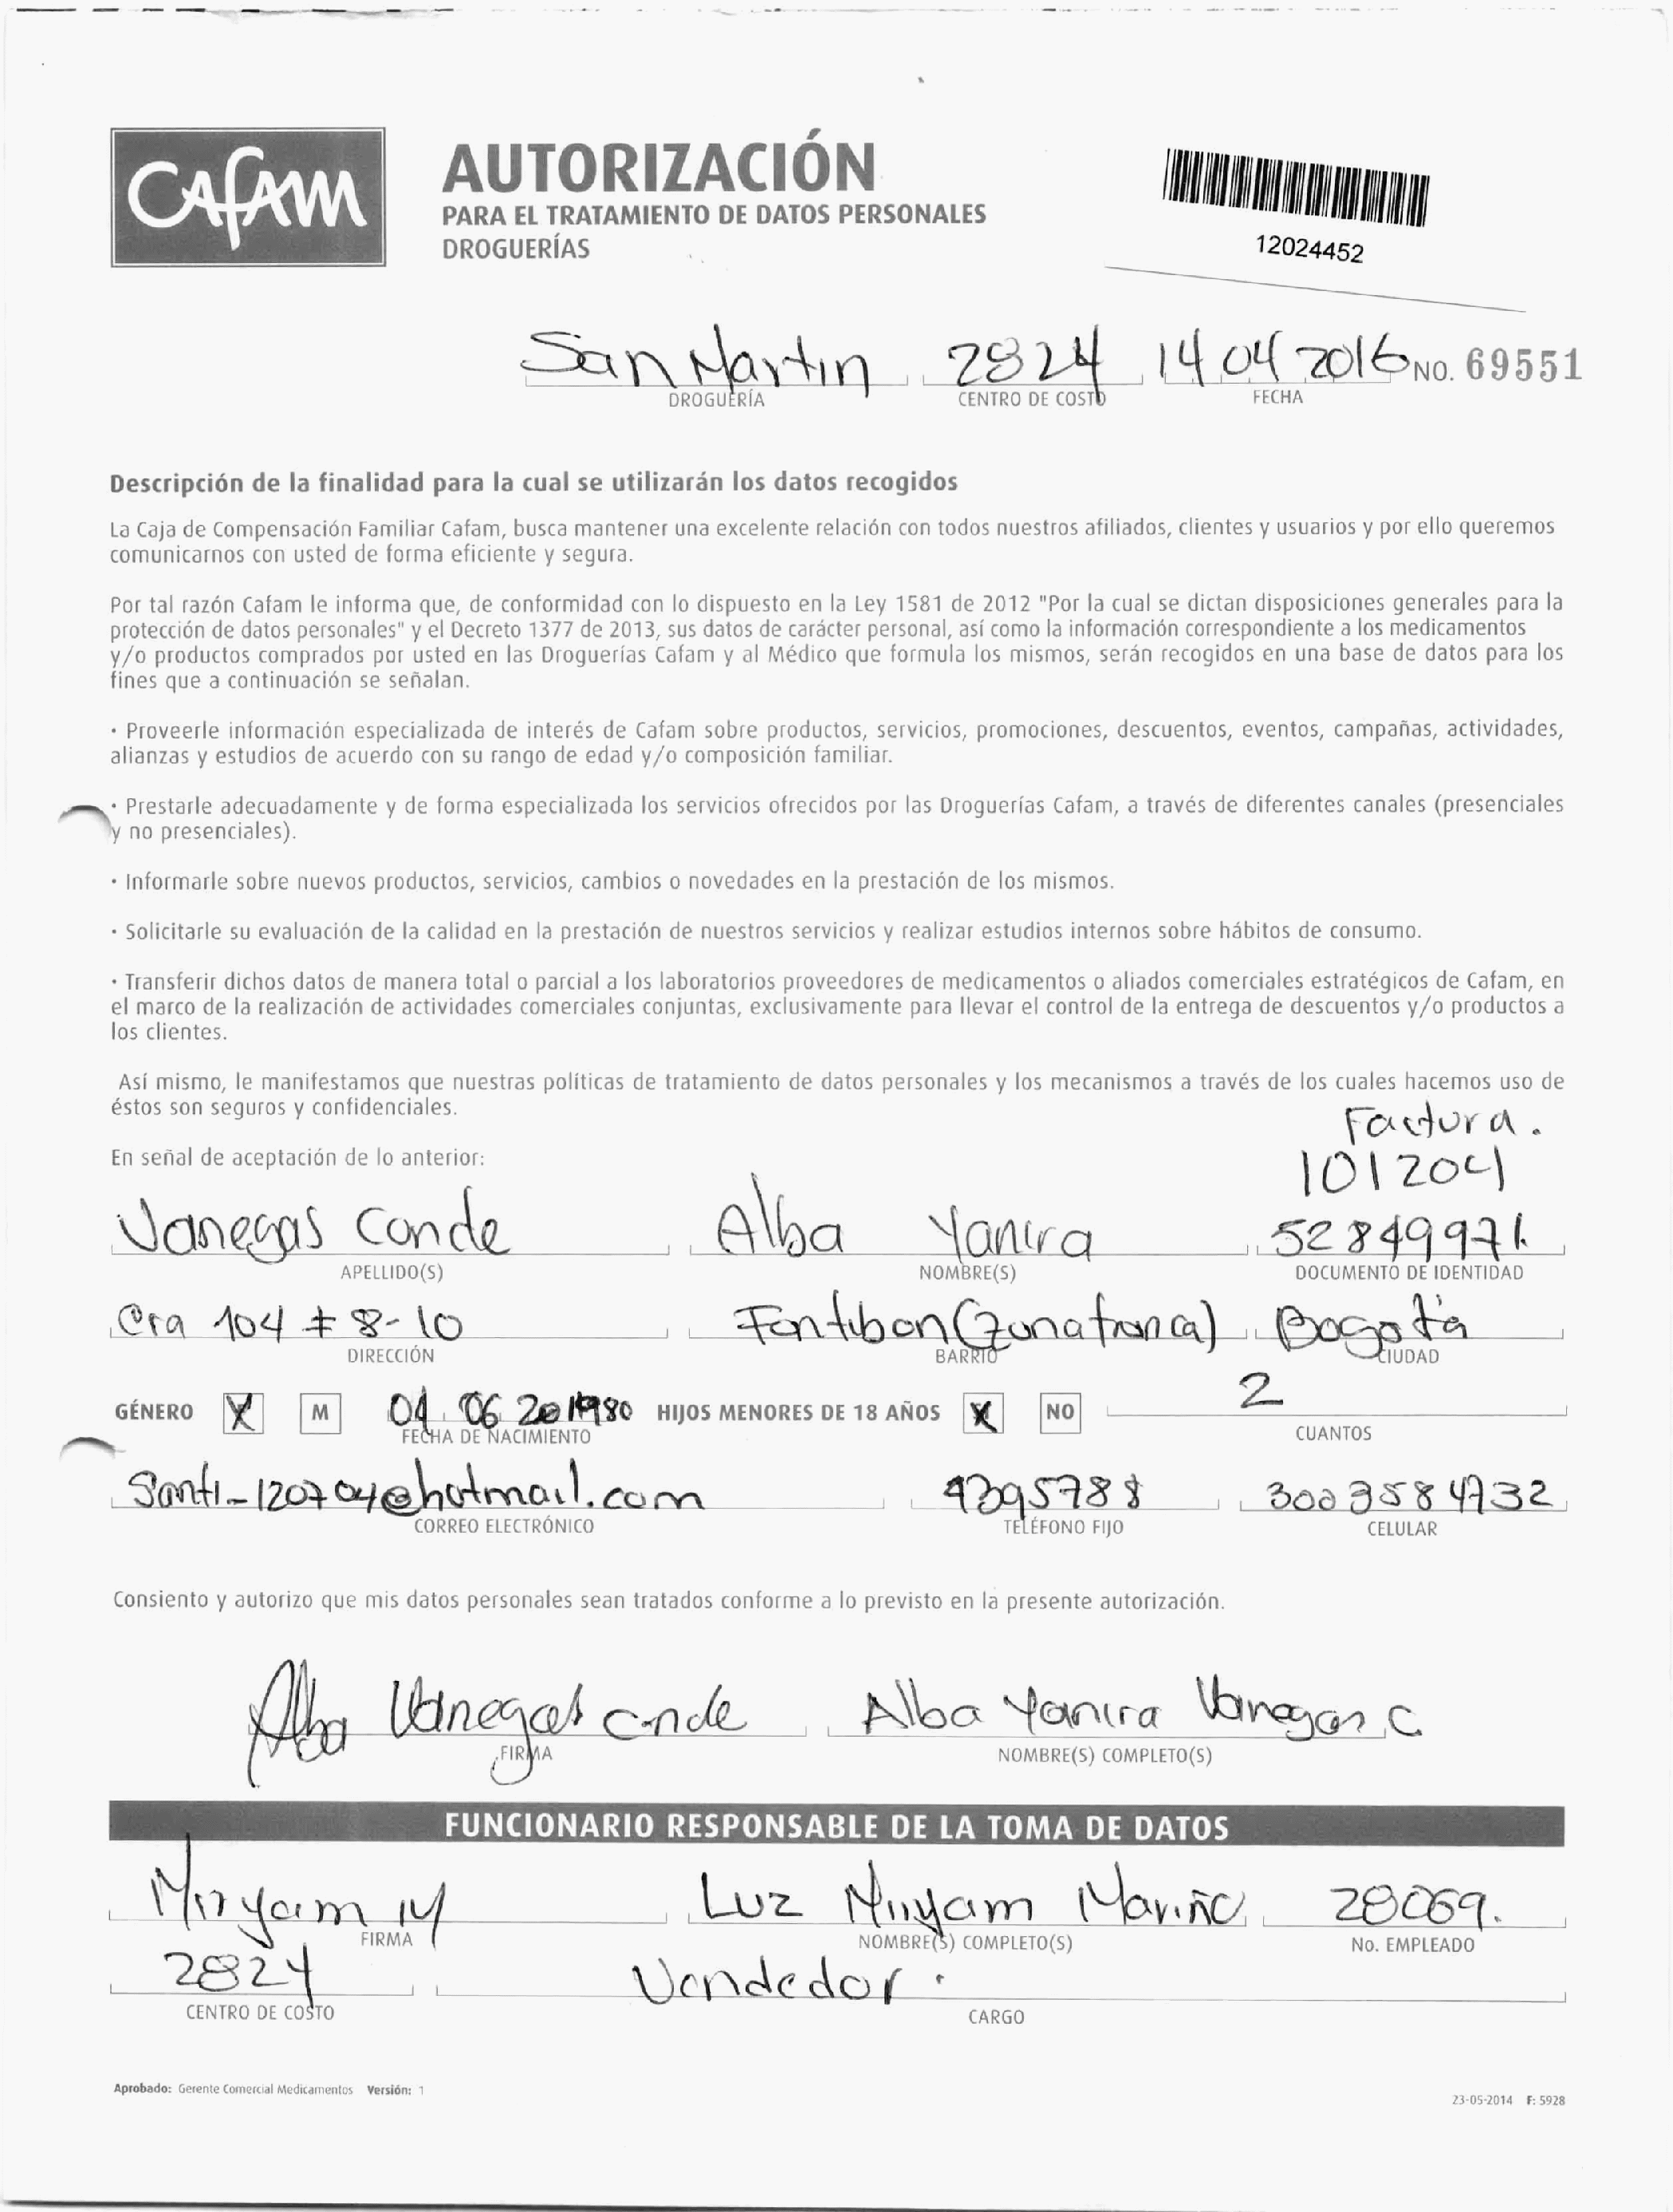 CAFAM
AUTORIZACIÓN
PARA EL TRATAMIENTO DE DATOS PERSONALES
DROGUERÍAS
12024452
San Martin 2824 14 04 2016 NO. 69551
DROGUERÍA CENTRO DE COSTO FECHA
Descripción de la finalidad para la cual se utilizarán los datos recogidos
La Caja de Compensación Familiar Cafam, busca mantener una excelente relación con todos nuestros afiliados, clientes y usuarios y por ello queremos
comunicarnos con usted de forma eficiente y segura.
Por tal razón Cafam le informa que, de conformidad con lo dispuesto en la Ley 1581 de 2012 "Por la cual se dictan disposiciones generales para la
protección de datos personales" y el Decreto 1377 de 2013, sus datos de carácter personal, así como la información correspondiente a los medicamentos
y/o productos comprados por usted en las Droguerías Cafam y al Médico que formula los mismos, serán recogidos en una base de datos para los
fines que a continuación se señalan.
· Proveerle información especializada de interés de Cafam sobre productos, servicios, promociones, descuentos, eventos, campañas, actividades,
alianzas y estudios de acuerdo con su rango de edad y/o composición familiar.
· Prestarle adecuadamente y de forma especializada los servicios ofrecidos por las Droguerías Cafam, a través de diferentes canales (presenciales
y no presenciales).
· Informarle sobre nuevos productos, servicios, cambios o novedades en la prestación de los mismos.
· Solicitarle su evaluación de la calidad en la prestación de nuestros servicios y realizar estudios internos sobre hábitos de consumo.
· Transferir dichos datos de manera total o parcial a los laboratorios proveedores de medicamentos o aliados comerciales estratégicos de Cafam, en
el marco de la realización de actividades comerciales conjuntas, exclusivamente para llevar el control de la entrega de descuentos y/o productos a
los clientes.
Así mismo, le manifestamos que nuestras políticas de tratamiento de datos personales y los mecanismos a través de los cuales hacemos uso de
éstos son seguros y confidenciales.
Factura.
En señal de aceptación de lo anterior:
101204
Vanegas Conde Alba Yanira 52849971.
APELLIDO(S) NOMBRE(S) DOCUMENTO DE IDENTIDAD
Cra 104 # 8-10 Fontibon (Zona franca) Bogotá
DIRECCIÓN BARRIO CIUDAD
GÉNERO X M 06 1980 HIJOS MENORES DE 18 AÑOS X NO 2
FECHA DE NACIMIENTO CUANTOS
Santi_120704@hotmail.com 4395788
CORREO ELECTRÓNICO TELÉFONO FIJO CELULAR
Consiento y autorizo que mis datos personales sean tratados conforme a lo previsto en la presente autorización.
Alba Vanegas Conde Alba Yanira Vanegas C
FIRMA NOMBRE(S) COMPLETO(S)
FUNCIONARIO RESPONSABLE DE LA TOMA DE DATOS
Miryam M Luz Miryam Mariño 28069.
FIRMA NOMBRE(S) COMPLETO(S) No. EMPLEADO
2824 Vendedor.
CENTRO DE COSTO CARGO
Aprobado: Gerente Comercial Medicamentos Versión: 1
23-05-2014 F: 5928